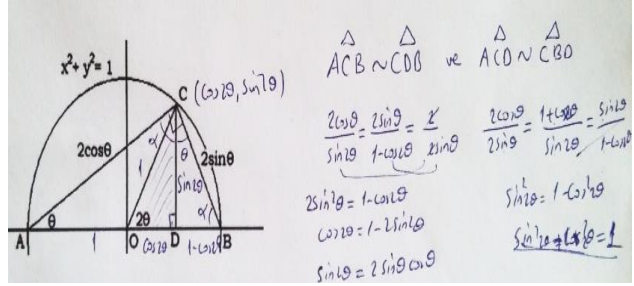 x²+y²=1
C (cos2θ, sin2θ)
2cosθ
1
α
θ
2sinθ
sin2θ
θ
2θ
α
A
O
D
B
1
cos2θ
1-cos2θ
△ △ △ △
ACB ~ CDB ve ACD ~ CBD
2cosθ/sin2θ = 2sinθ/1-cos2θ = 2/2sinθ
2cosθ/2sinθ = 1+cos2θ/sin2θ = sin2θ/1-cos2θ
2sin²θ = 1-cos2θ
cos2θ = 1-2sin²θ
sin2θ = 2sinθcosθ
sin²2θ = 1-cos²2θ
sin²2θ+cos²2θ=1